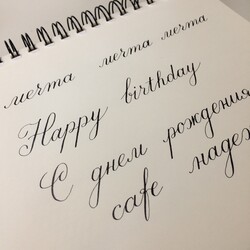 мечта мечта мечта
Happy birthday
С днем рождения
cafe надеж